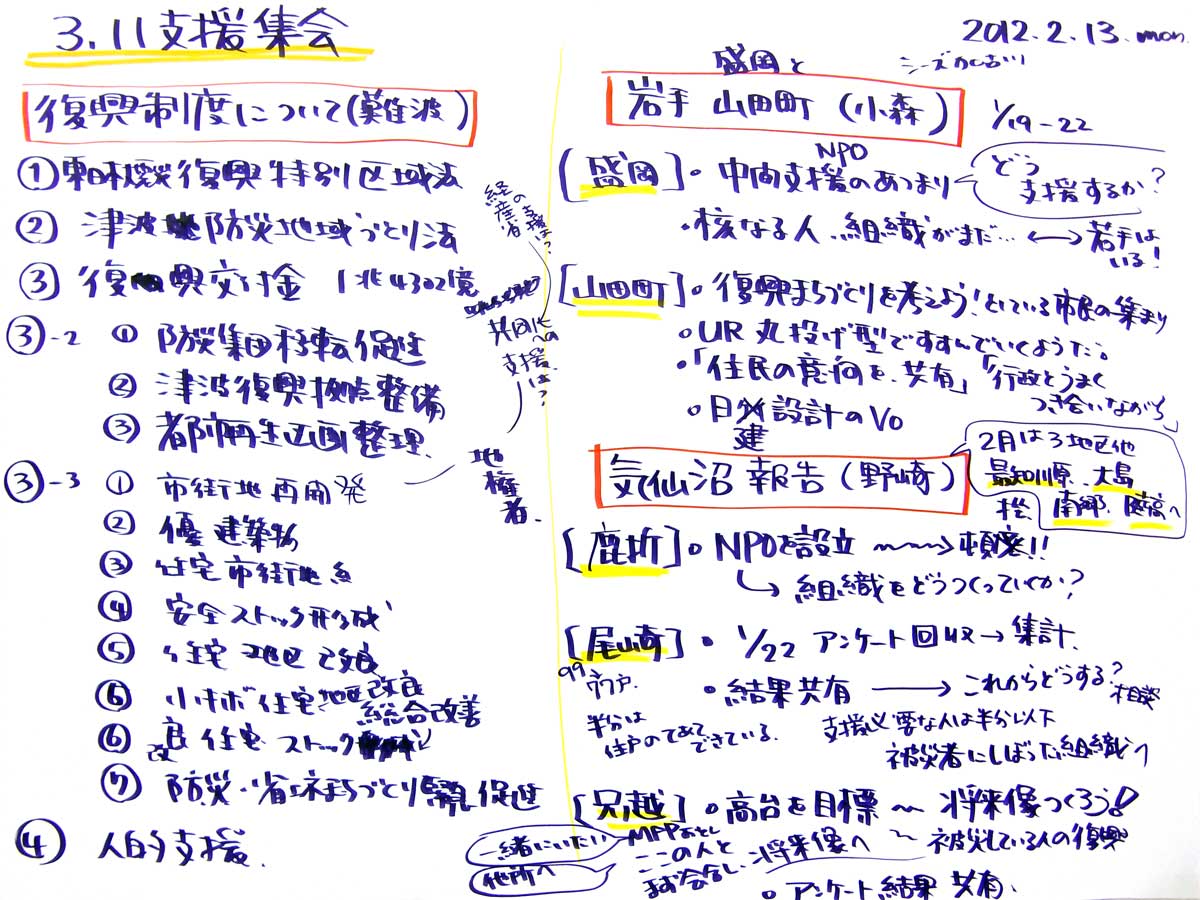 3.11支援集会
復興制度について(難波)
① 東日本震災復興特別区域法
② 津波 防災地域づくり法
③ 復興交付金 1兆4302億
③-2 ① 防災集団移転促進
② 津波復興拠点整備
③ 都市再生区画整理
③-3 ① 市街地再開発
② 優建築物
③ 住宅市街地
④ 安全ストック形成
⑤ 住宅地区改良
⑥ 小サボ住宅地区改良
総合改善
⑥ 改良住宅ストック
⑦ 防災・省エネまちづくり緊急促進
④ 人的支援
経産省の支援は?
共同化への支援は?
地権者
2012.2.13.mon.
盛岡と
岩手 山田町 (小森)
1/19-22
[盛岡]・中間支援NPOのあつまり
どう支援するか?
・核なる人、組織がまだ… ←→ 若手はいる!
[山田町]・復興まちづくりを考えよう!といている市民の集まり
・UR丸投げ型ですすんでいくようだ。
・「住民の意向を、共有」「行政とうまくつき合いながら」
・日建設計のVo
気仙沼 報告 (野崎)
2月は3地区他
最知川原、大島
南郷、
[鹿折]・NPOを設立 → 頓挫!!
→ 組織をどうつくっていくか?
[尾崎]・1/22 アンケート回収→集計
99
・結果共有 → これからどうする? 相談
半分は
住戸のてあてできている。
支援必要な人は半分以下
被災者にしぼった組織へ
[只越]・高台を目標 〜 将来像つくろう!
一緒にいたい
他所へ
ここの人と
まず会合し、将来像へ 〜 被災している人の復興
・アンケート結果共有。